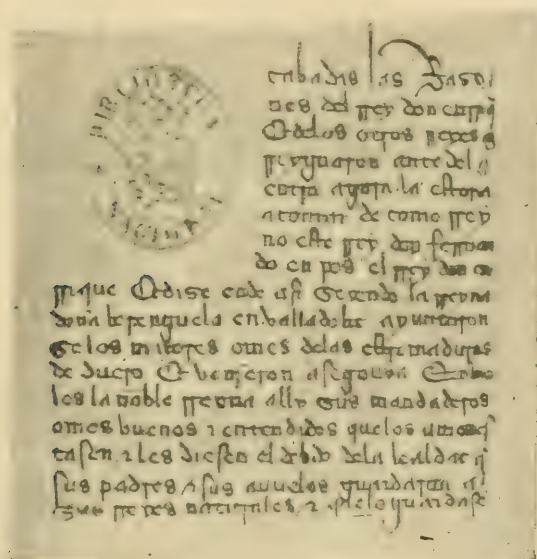 BIBLIOTECA NACIONAL
cabadas las Raso
nes del rrey don enrriq̃
E delos otros reyes q̃
rreygnaron ante del q̃
cuenta agora la estoria
a tornar de como rrey
no este rrey don fernan
do en pos el rrey don en
rrique E dise ende asi Seyendo la rreyna
doña berenguela en valladolit ayuntaron
se los mayores omes delas estremaduras
de duero E venieron a segouia E enbio
les la noble rreyna ally sus mandaderos
omes buenos z entendidos quelos amones
tasen z les diesen el debdo dela lealdat q̃
sus padres z sus auuelos guardaron a
sus reyes naturales z q̃ lo guardase